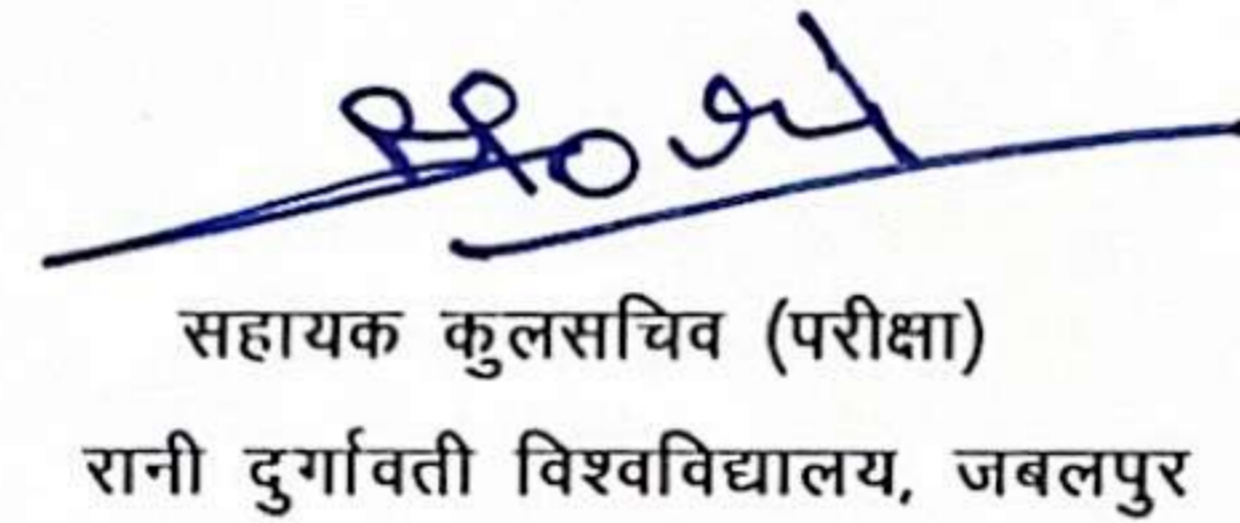 सहायक कुलसचिव (परीक्षा)
रानी दुर्गावती विश्वविद्यालय, जबलपुर